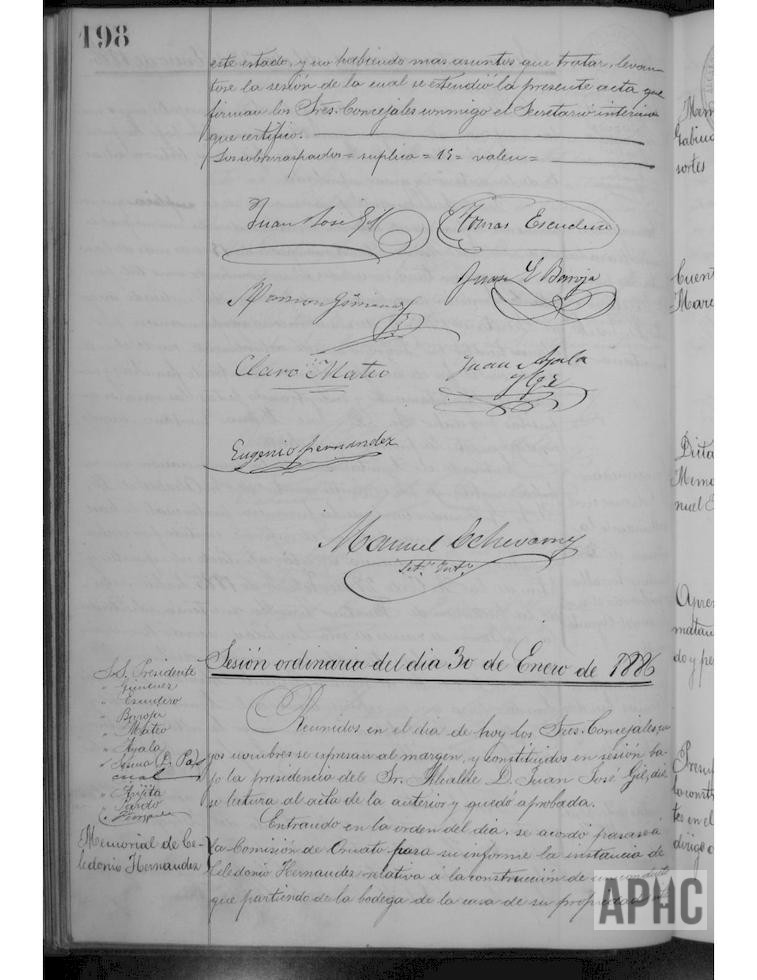 198
este estado, y no habiendo mas asuntos que tratar, levan-
tose la sesión de la cual se extendió la presente acta que
firman los Sres. Concejales conmigo el Secretario interino
que certifico.
Los sobrerraspados = suplica = 15 = valen =
Juan José Gil
Tomas Escudero
Ramon Gimenez
Juan G Baroja
Claro Mateo
Juan Ayala
Eugenio Fernandez
Manuel Echevarry
Set.º Int.º
Sesión ordinaria del dia 30 de Enero de 1886
S.S. Presidente
" Gimenez
" Escudero
" Baroja
" Mateo
" Ayala
(D. Pas
cual
" Pardo
Memorial de Ce-
ledonio Hernandez
Reunidos en el dia de hoy los Sres. Concejales, cu
yos nombres se espresan al margen, y constituidos en sesión ba-
jo la presidencia del Sr. Alcalde D. Juan José Gil, dió
se lectura al acta de la anterior y quedó aprobada.
Entrando en la orden del dia, se acordó pasase á
la Comisión de Ornato para su informe la instancia de
Celedonio Hernandez relativa á la construcción de un conducto
que partiendo de la bodega de la casa de su propiedad
Mem
Gabino
sortes
Cuent
Marc
Dicta
Memo
nuel E
Apre
matan
do y pe
Presu
la constr
tes en el
dirigo
APHC